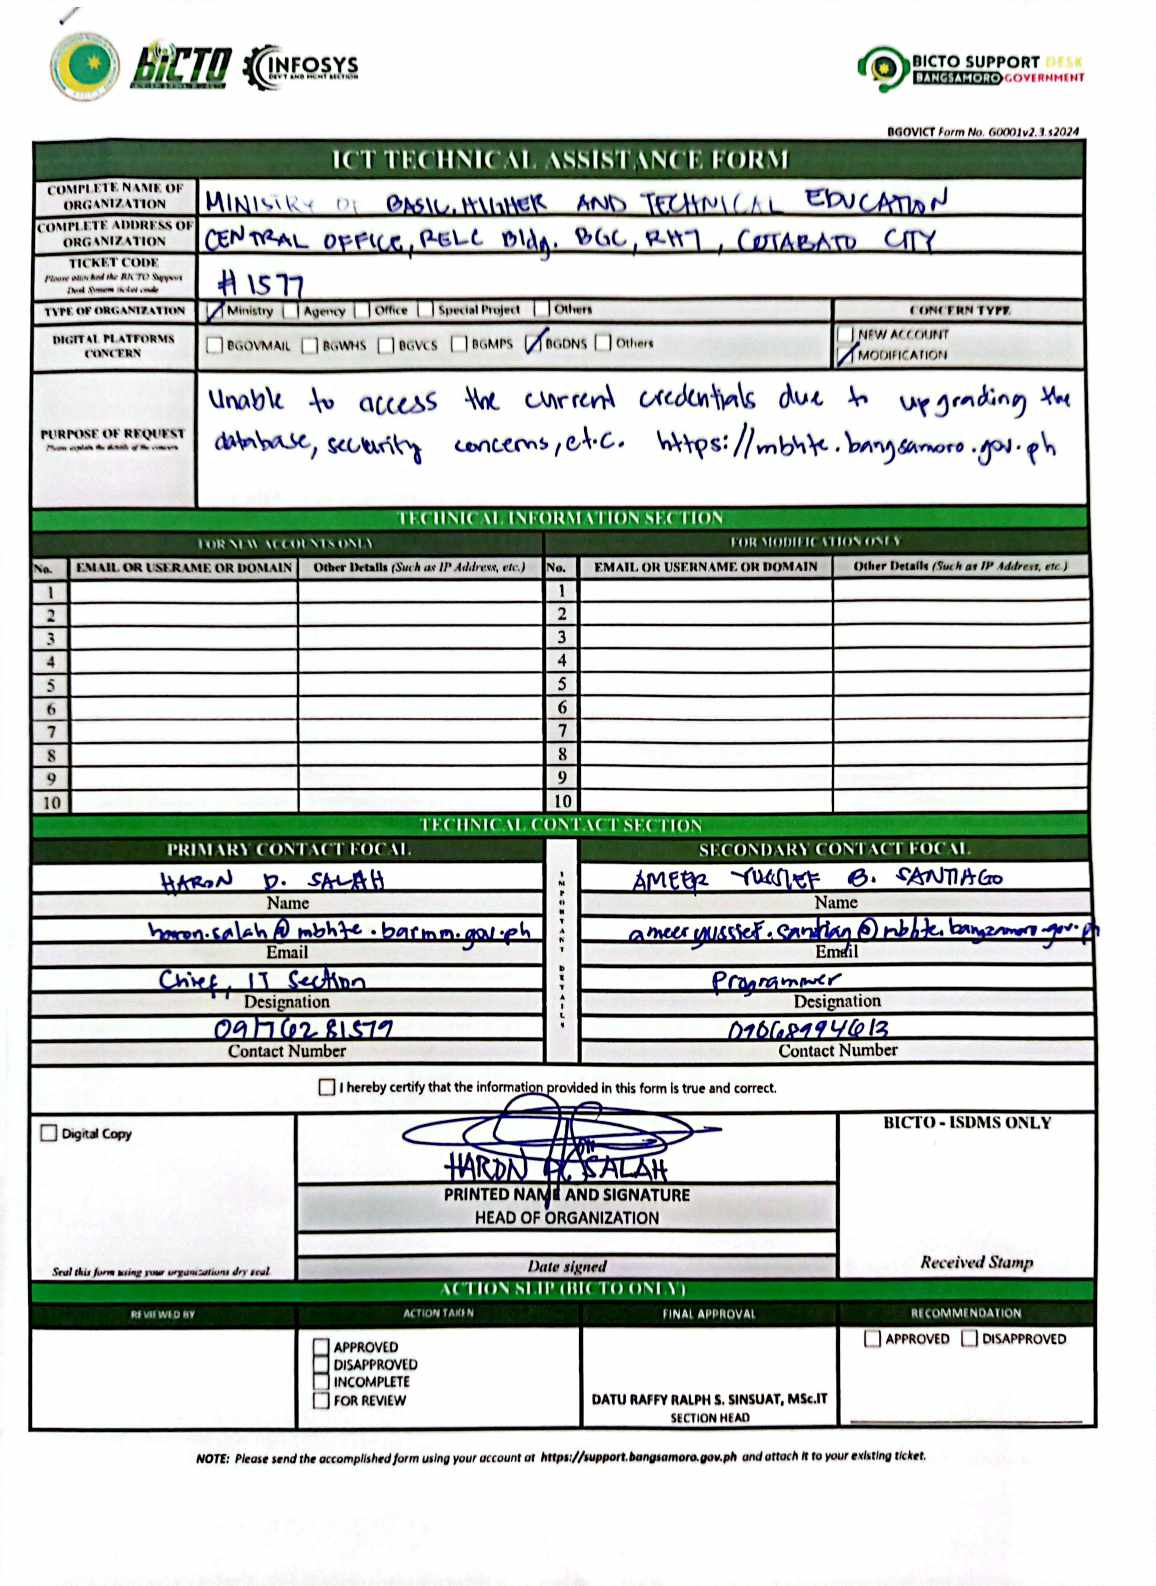 BICTO
INFOSYS
DEV'T AND MGMT SECTION
BICTO SUPPORT DESK
BANGSAMORO GOVERNMENT
BGOVICT Form No. G0001v2.3.s2024
ICT TECHNICAL ASSISTANCE FORM
COMPLETE NAME OF ORGANIZATION
MINISTRY OF BASIC, HIGHER AND TECHNICAL EDUCATION
COMPLETE ADDRESS OF ORGANIZATION
CENTRAL OFFICE, RELC Bldg. BGC, RH7, COTABATO CITY
TICKET CODE
Please attached the BICTO Support Desk System ticket code
#1577
TYPE OF ORGANIZATION
Ministry Agency Office Special Project Others
CONCERN TYPE
DIGITAL PLATFORMS CONCERN
BGOVMAIL BGWHS BGVCS BGMPS BGDNS Others
NEW ACCOUNT
MODIFICATION
PURPOSE OF REQUEST
Please explain the details of the concern
Unable to access the current credentials due to upgrading the
database, security concerns, etc. https://mbhte.bangsamoro.gov.ph
TECHNICAL INFORMATION SECTION
FOR NEW ACCOUNTS ONLY FOR MODIFICATION ONLY
No. EMAIL OR USERAME OR DOMAIN Other Details (Such as IP Address, etc.) No. EMAIL OR USERNAME OR DOMAIN Other Details (Such as IP Address, etc.)
1 1
2 2
3 3
4 4
5 5
6 6
7 7
8 8
9 9
10 10
TECHNICAL CONTACT SECTION
PRIMARY CONTACT FOCAL SECONDARY CONTACT FOCAL
IMPORTANT DETAILS
HARON D. SALAH AMEER YUSSIEF B. SANTIAGO
Name Name
haron.salah@mbhte.barmm.gov.ph ameeryussief.santiag@mbhte.bangsamoro.gov.ph
Email Email
Chief, IT Section Programmer
Designation Designation
09176281579 09068994613
Contact Number Contact Number
I hereby certify that the information provided in this form is true and correct.
Digital Copy
BICTO - ISDMS ONLY
HARON D. SALAH
PRINTED NAME AND SIGNATURE
HEAD OF ORGANIZATION
Seal this form using your organizations dry seal.
Date signed
Received Stamp
ACTION SLIP (BICTO ONLY)
REVIEWED BY ACTION TAKEN FINAL APPROVAL RECOMMENDATION
APPROVED
DISAPPROVED
INCOMPLETE
FOR REVIEW
APPROVED DISAPPROVED
DATU RAFFY RALPH S. SINSUAT, MSc.IT
SECTION HEAD
NOTE: Please send the accomplished form using your account at https://support.bangsamoro.gov.ph and attach it to your existing ticket.